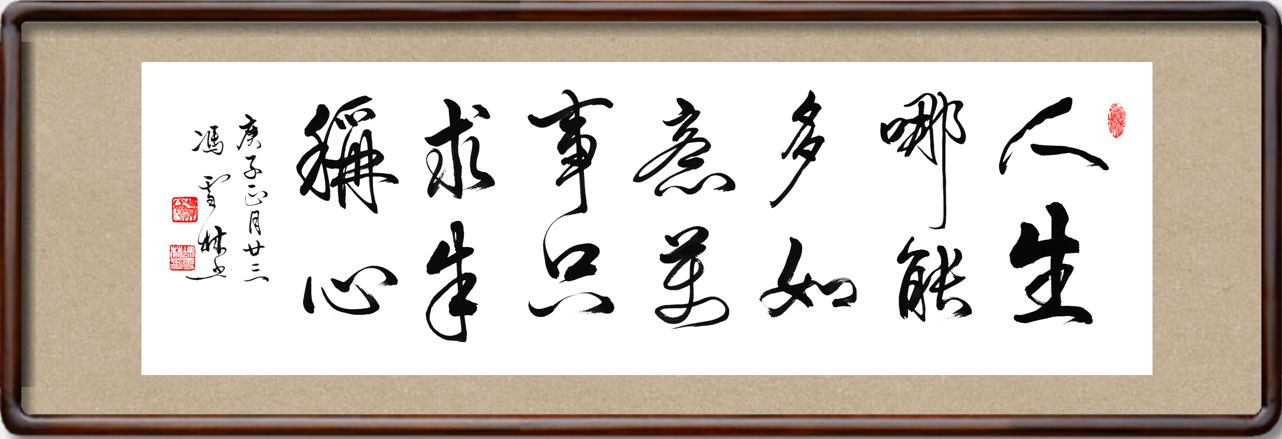 人生
哪能
多如
意萬
事只
求半
稱心
庚子正月廿三
馮雪林书